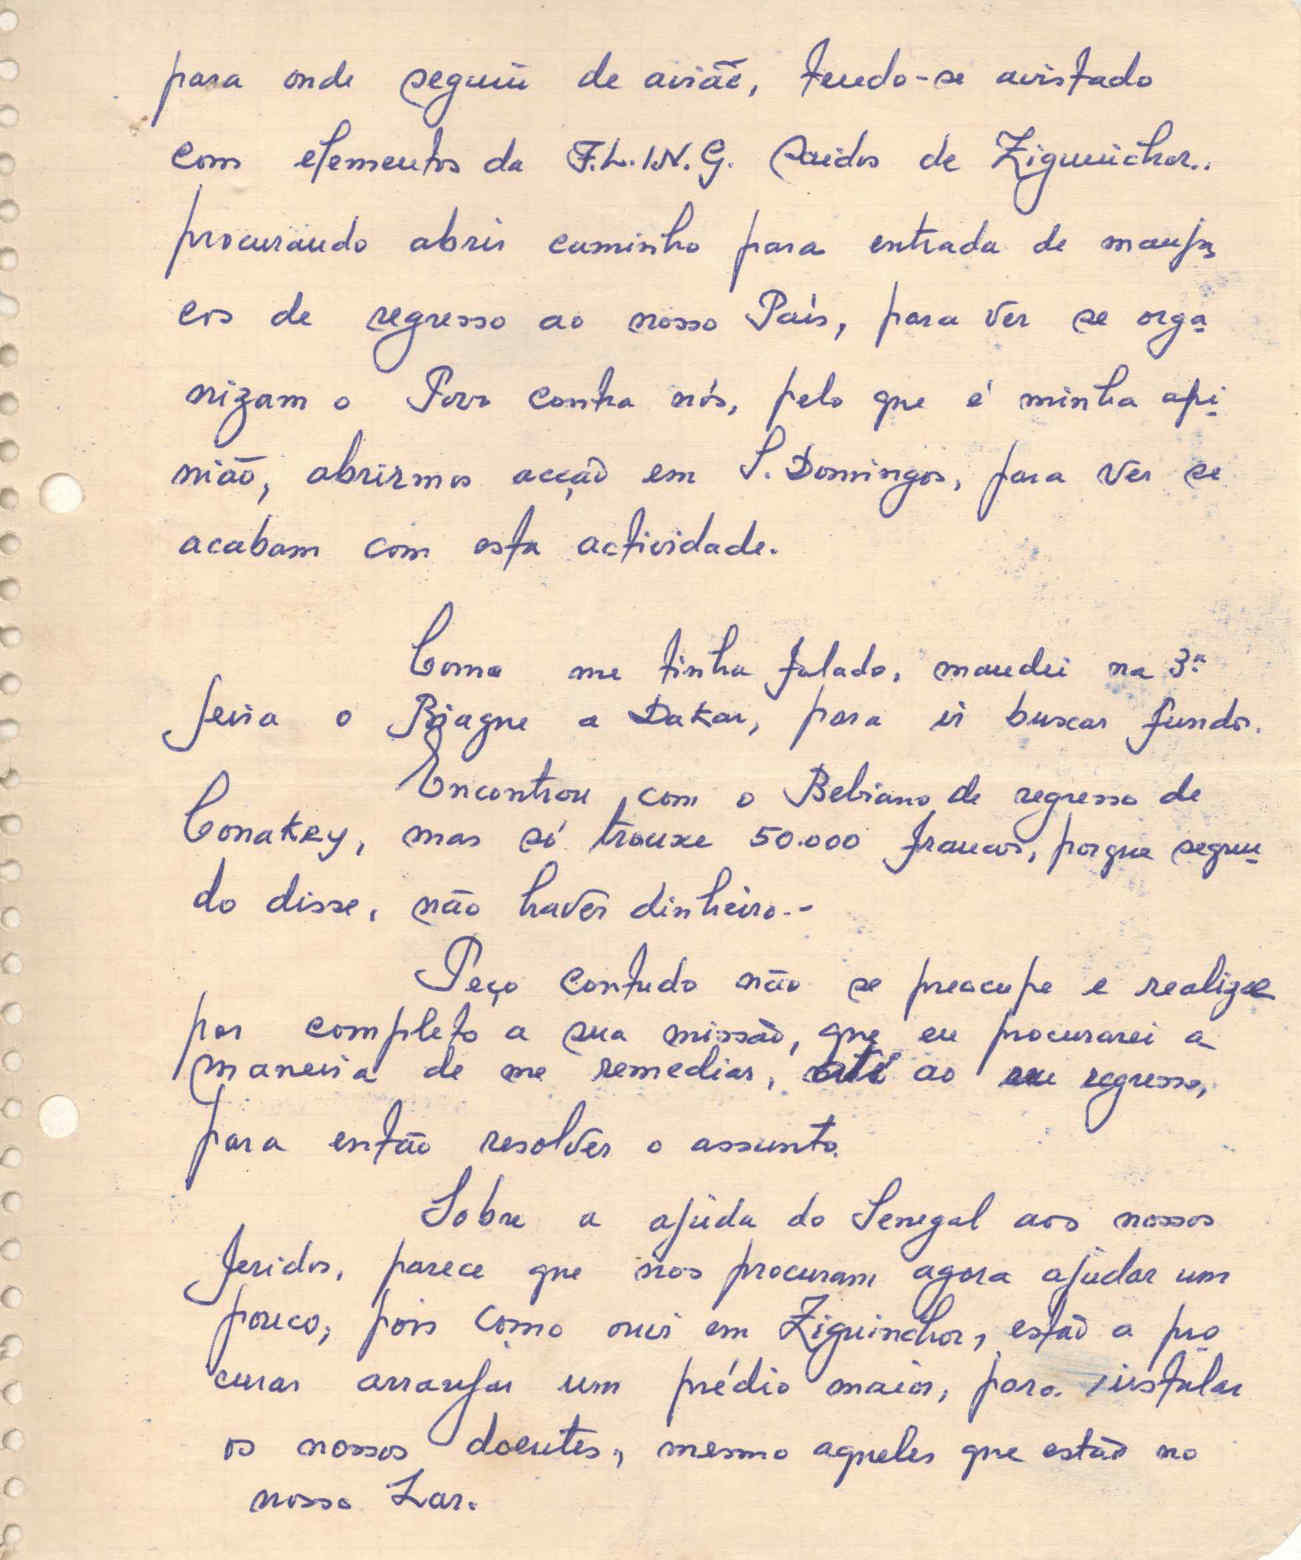 para onde seguiu de avião, tendo-se avistado
com elementos da F.L.I.N.G. saidos de Ziguinchor..
procurando abrir caminho para entrada de manja
cos de regresso ao nosso País, para ver se orga
nizam o Povo contra nós, pelo que é minha opi
nião, abrirmos acção em S. Domingos, para ver se
acabam com esta actividade.
Como me tinha falado, mandei na 3ª
feira o Biagne a Dakar, para ir buscar fundos.
Encontrou com o Bebiano de regresso de
Conakry, mas só trouxe 50.000 francos, porque segun
do disse, não haver dinheiro.-
Peço contudo não se preocupe e realize
por completo a sua missão, que eu procurarei a
maneira de me remediar, até ao seu regresso,
para então resolver o assunto.
Sobre a ajuda do Senegal aos nossos
feridos, parece que nos procuram agora ajudar um
pouco, pois como ouvi em Ziguinchor, estão a pro
curar arranjar um prédio maior, para instalar
os nossos doentes, mesmo aqueles que estão no
nosso Lar.